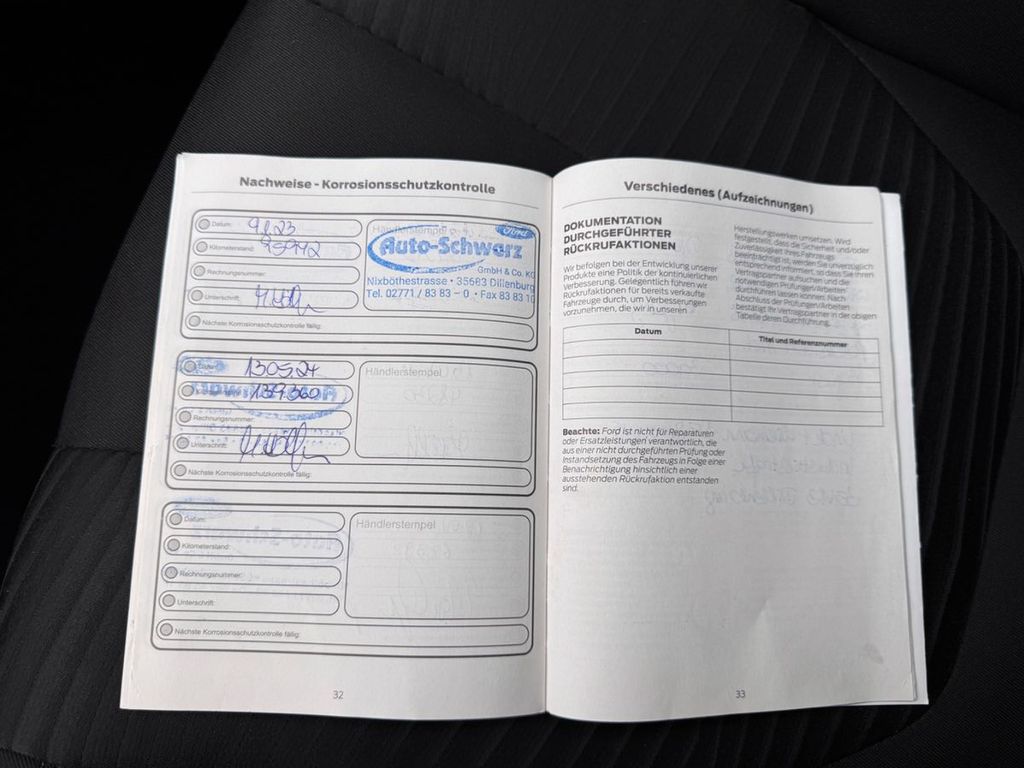 Nachweise - Korrosionsschutzkontrolle
Datum: 9.1.23
Kilometerstand:
Rechnungsnummer:
Unterschrift:
Nächste Korrosionsschutzkontrolle fällig:
Händlerstempel
Ford
Auto-Schwarz
GmbH & Co. KG
Nixböthestrasse • 35683 Dillenburg
Tel. 02771 / 83 83 – 0 • Fax 83 83 10
130524
139360
Rechnungsnummer:
Unterschrift:
Nächste Korrosionsschutzkontrolle fällig:
Händlerstempel
Datum:
Kilometerstand:
Rechnungsnummer:
Unterschrift:
Nächste Korrosionsschutzkontrolle fällig:
Händlerstempel
32
Verschiedenes (Aufzeichnungen)
DOKUMENTATION
DURCHGEFÜHRTER
RÜCKRUFAKTIONEN
Wir befolgen bei der Entwicklung unserer
Produkte eine Politik der kontinuierlichen
Verbesserung. Gelegentlich führen wir
Rückrufaktionen für bereits verkaufte
Fahrzeuge durch, um Verbesserungen
vorzunehmen, die wir in unseren
Herstellungswerken umsetzen. Wird
festgestellt, dass die Sicherheit und/oder
Zuverlässigkeit Ihres Fahrzeugs
beeinträchtigt ist, werden Sie unverzüglich
entsprechend informiert, so dass Sie Ihren
Vertragspartner aufsuchen und die
notwendigen Prüfungen/Arbeiten
durchführen lassen können. Nach
Abschluss der Prüfungen/Arbeiten
bestätigt Ihr Vertragspartner in der obigen
Tabelle deren Durchführung.
Datum
Titel und Referenznummer
Beachte: Ford ist nicht für Reparaturen
oder Ersatzleistungen verantwortlich, die
aus einer nicht durchgeführten Prüfung oder
Instandsetzung des Fahrzeugs in Folge einer
Benachrichtigung hinsichtlich einer
ausstehenden Rückrufaktion entstanden
sind.
33